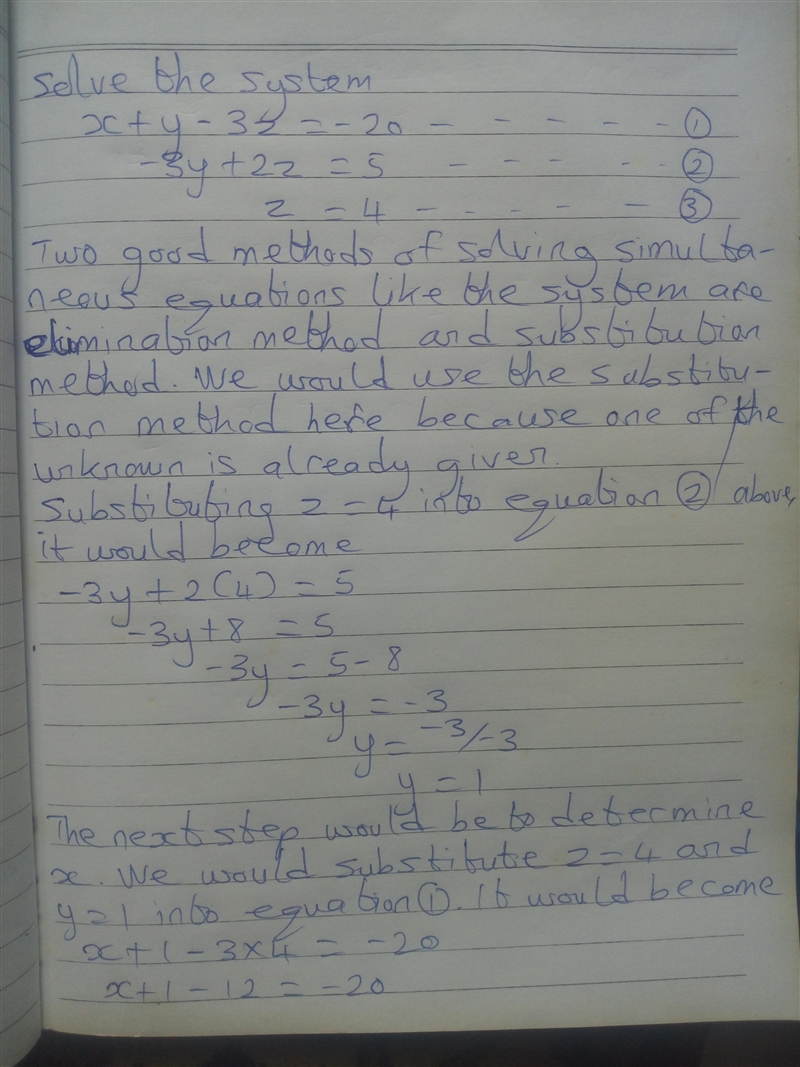 solve the system
x + y - 3z = -20 - - - - - ①
-3y + 2z = 5 - - - - - ②
z = 4 - - - - - ③
Two good methods of solving simulta-
neous equations like the system are
elimination method and substitution
method. We would use the substitu-
tion method here because one of the
unknown is already given.
Substituting z = 4 into equation ② above,
it would become
-3y + 2(4) = 5
-3y + 8 = 5
-3y = 5 - 8
-3y = -3
y = -3/-3
y = 1
The next step would be to determine
x. We would substitute z = 4 and
y = 1 into equation ①. It would become
x + 1 - 3 × 4 = -20
x + 1 - 12 = -20